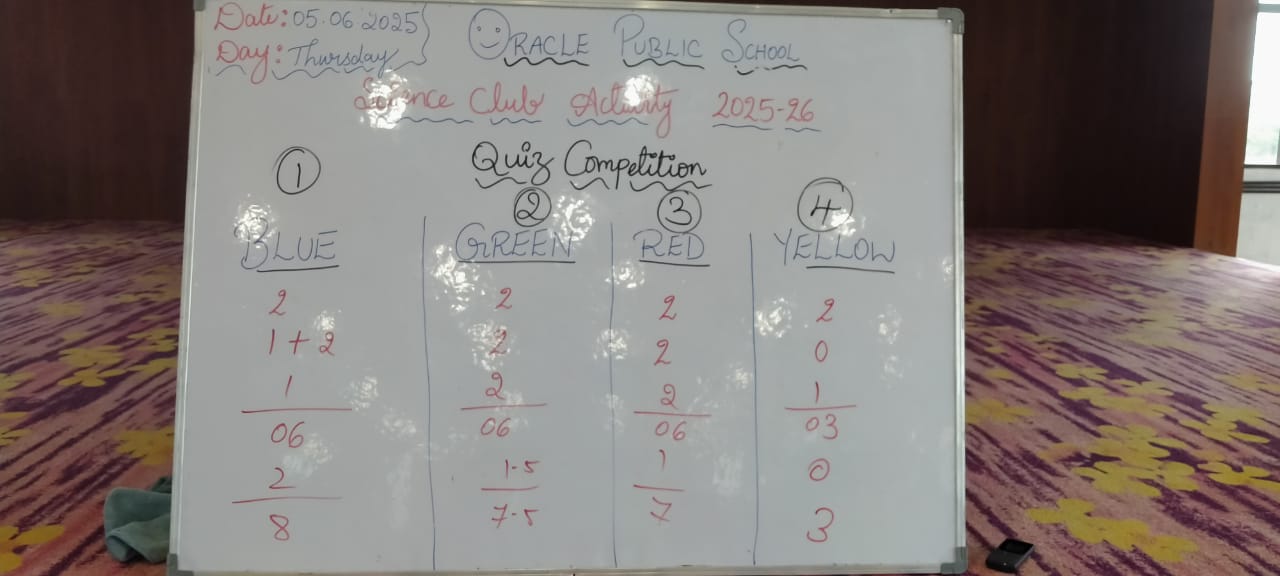 Date: 05.06.2025
Day: Thursday
ORACLE PUBLIC SCHOOL
Science Club Activity 2025-26
Quiz Competition
1 2 3 4
BLUE GREEN RED YELLOW
2 2 2 2
1+2 2 2 0
1 2 2 1
06 06 06 03
2 1.5 1 0
8 7.5 7 3